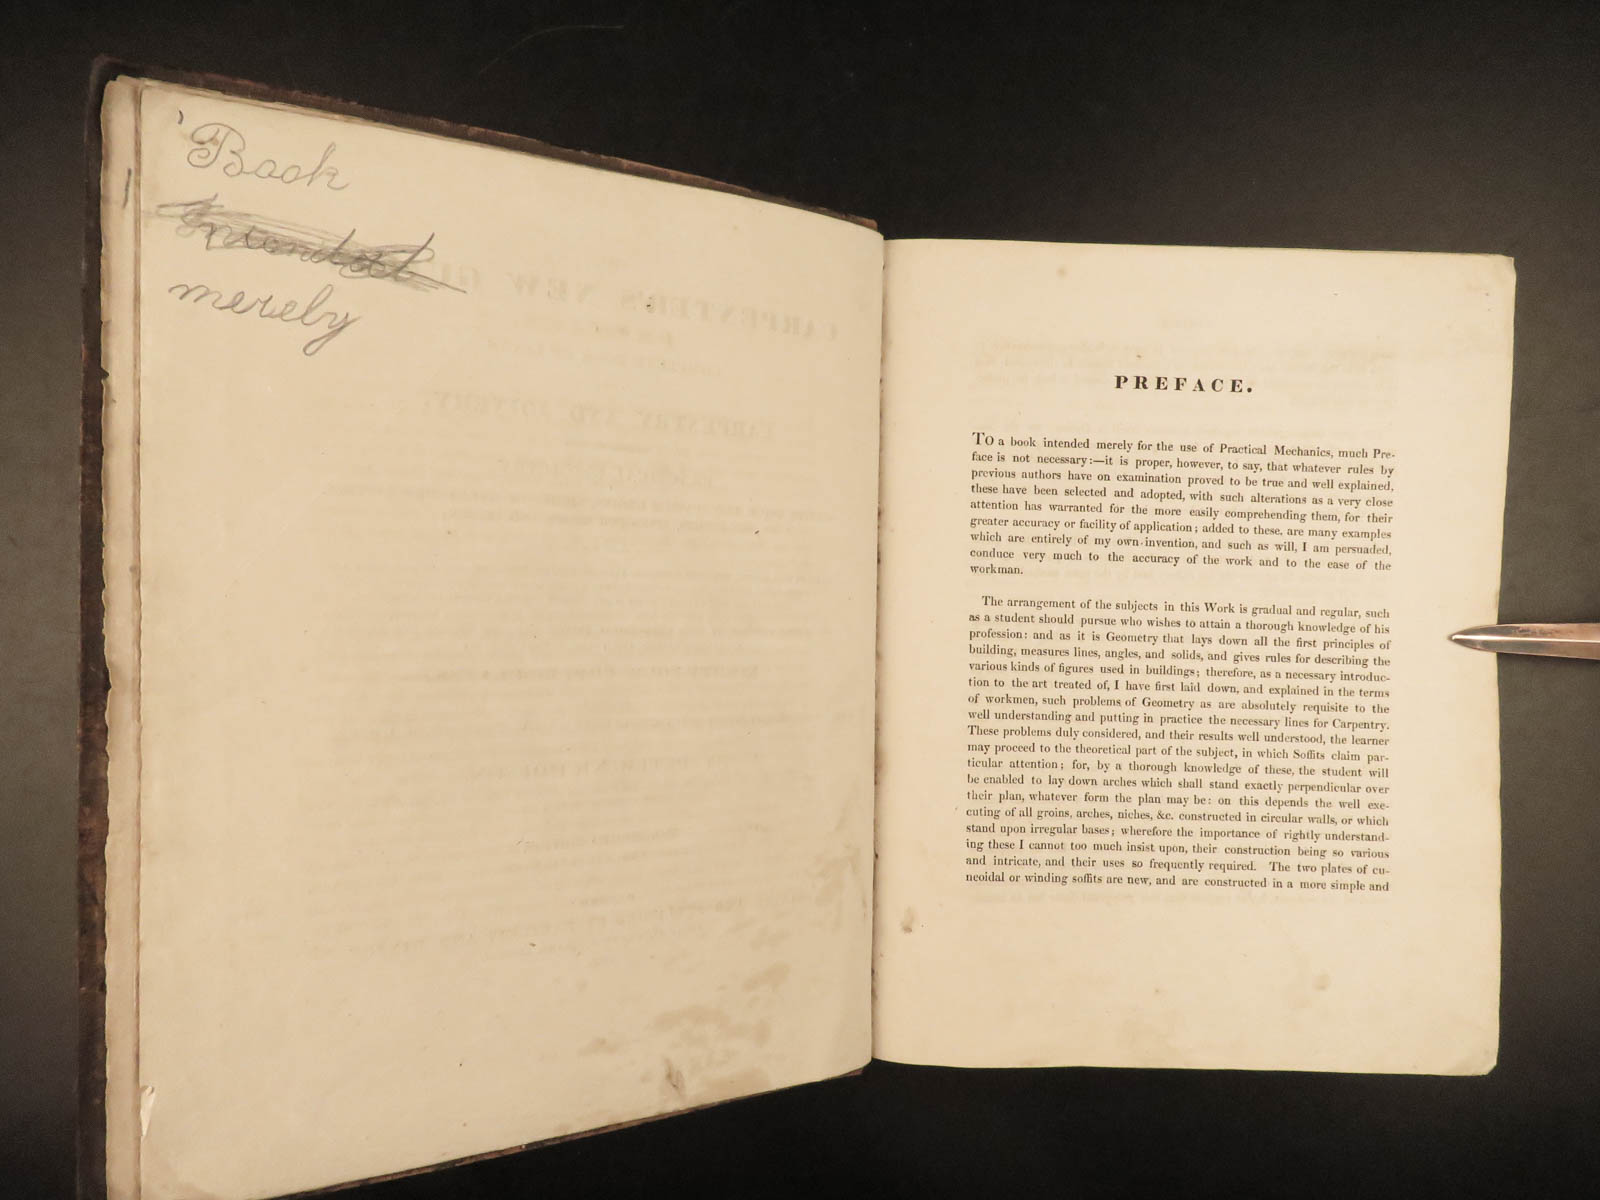 Book
Intended
mereby
PREFACE.
To a book intended merely for the use of Practical Mechanics, much Pre-
face is not necessary:—it is proper, however, to say, that whatever rules by
previous authors have on examination proved to be true and well explained,
these have been selected and adopted, with such alterations as a very close
attention has warranted for the more easily comprehending them, for their
greater accuracy or facility of application; added to these, are many examples
which are entirely of my own invention, and such as will, I am persuaded,
conduce very much to the accuracy of the work and to the ease of the
workman.
The arrangement of the subjects in this Work is gradual and regular, such
as a student should pursue who wishes to attain a thorough knowledge of his
profession: and as it is Geometry that lays down all the first principles of
building, measures lines, angles, and solids, and gives rules for describing the
various kinds of figures used in buildings; therefore, as a necessary introduc-
tion to the art treated of, I have first laid down, and explained in the terms
of workmen, such problems of Geometry as are absolutely requisite to the
well understanding and putting in practice the necessary lines for Carpentry.
These problems duly considered, and their results well understood, the learner
may proceed to the theoretical part of the subject, in which Soffits claim par-
ticular attention; for, by a thorough knowledge of these, the student will
be enabled to lay down arches which shall stand exactly perpendicular over
their plan, whatever form the plan may be: on this depends the well exe-
cuting of all groins, arches, niches, &c. constructed in circular walls, or which
stand upon irregular bases; wherefore the importance of rightly understand-
ing these I cannot too much insist upon, their construction being so various
and intricate, and their uses so frequently required. The two plates of cu-
neoidal or winding soffits are new, and are constructed in a more simple and